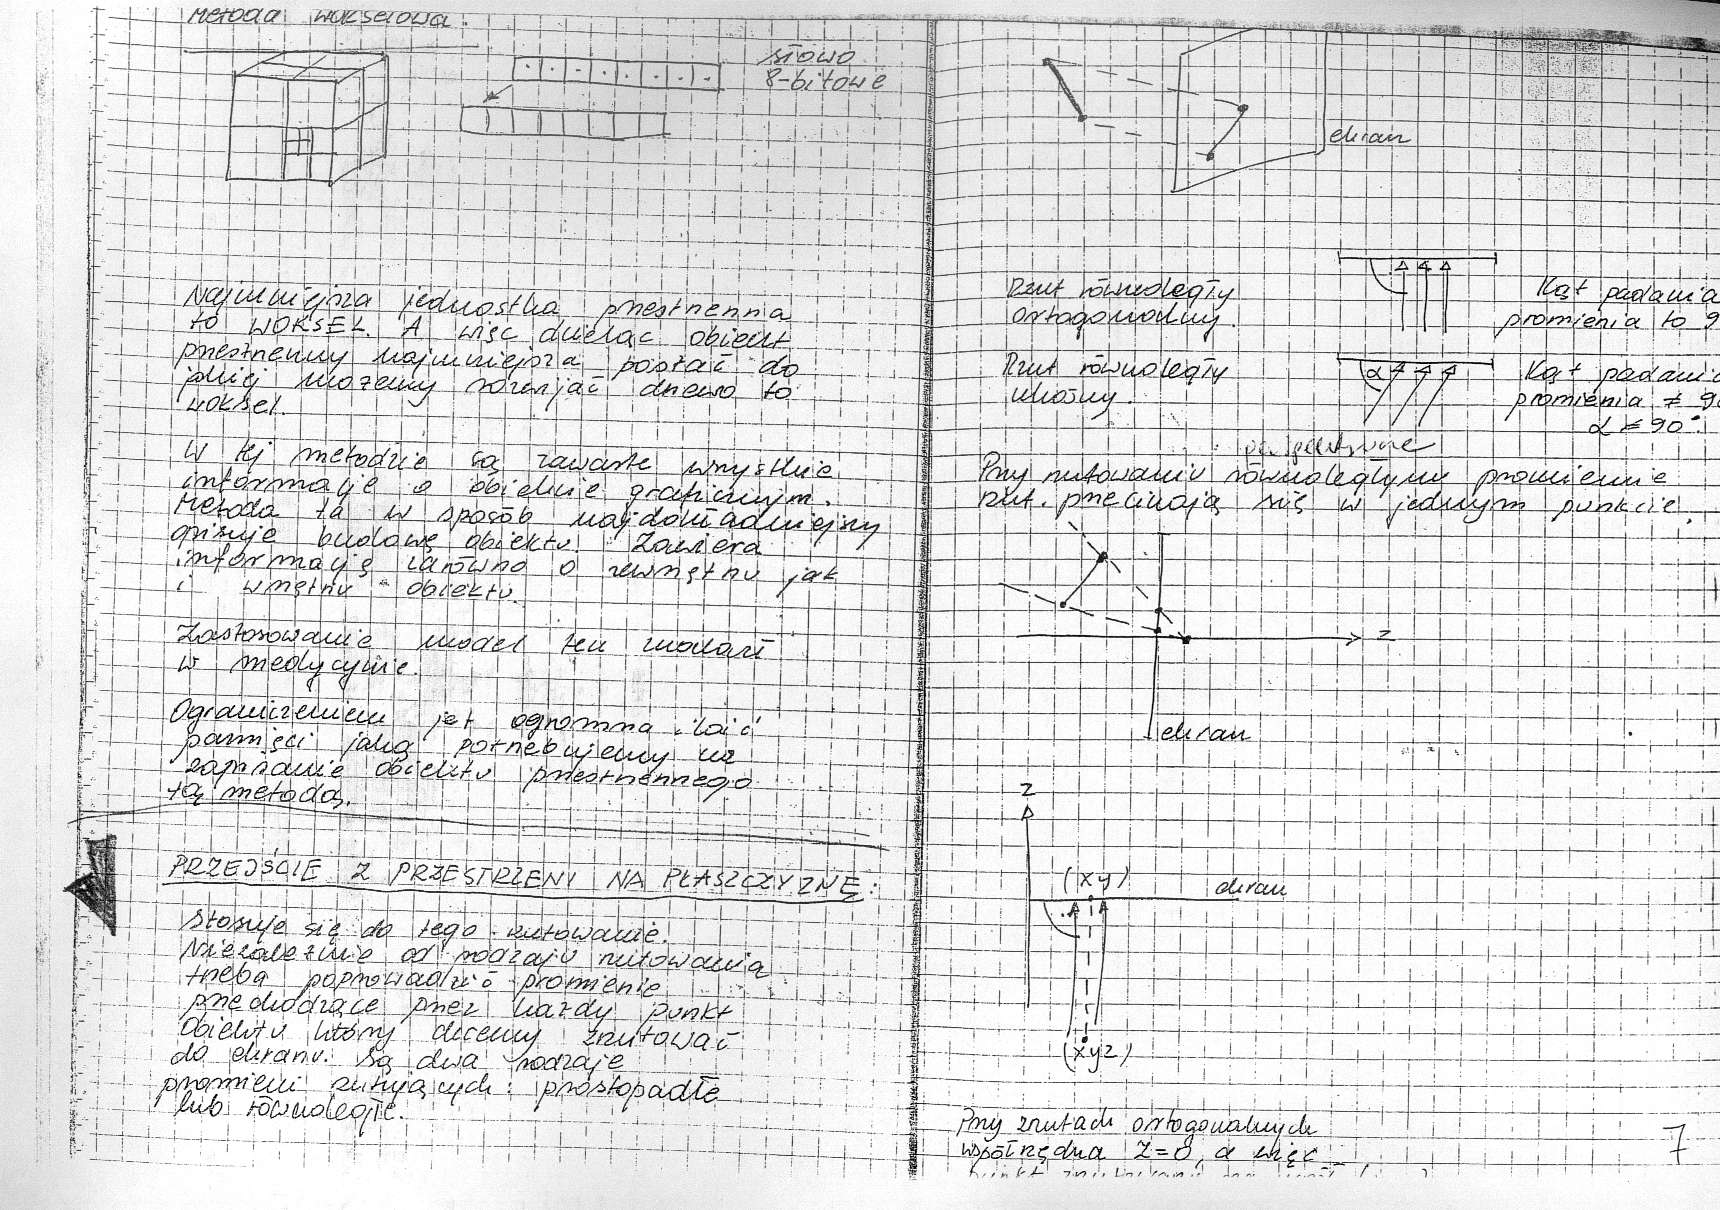 Metoda wokselowa:
słowo
8-bitowe
Najmniejsza jednostka przestrzenna
to WOKSEL. A więc dzieląc obiekt
przestrzenny najmniejsza postać do
jakiej możemy rozwijać drzewo to
woksel.
W tej metodzie są zawarte wszystkie
informacje o obiekcie graficznym.
Metoda ta w sposób najdokładniejszy
opisuje budowę obiektu. Zawiera
informację zarówno o zewnętrzu jak
i wnętrzu obiektu.
Zastosowanie model ten znalazł
w medycynie.
Ograniczeniem jest ogromna ilość
pamięci jaką potrzebujemy na
zapisanie obiektu przestrzennego
tą metodą.
PRZEJŚCIE Z PRZESTRZENI NA PŁASZCZYZNĘ:
Stosuje się do tego rzutowanie.
Niezależnie od rodzaju rzutowania
trzeba poprowadzić promienie
przechodzące przez każdy punkt
obiektu który chcemy zrzutować
do ekranu. Są dwa rodzaje
promieni rzutujących: prostopadłe
lub równoległe.
ekran
Rzut równoległy
ortogonalny.
Kąt padania
promienia to 9
Rzut równoległy
ukośny.
α
Kąt padania
promienia ≠ 90
α ≠ 90°
perspektywie
Przy rzutowaniu równoległym promienie
rzut. przecinają się w jednym punkcie.
z
ekran
z
(xy)
ekran
(xyz)
Przy rzutach ortogonalnych
współrzędna Z=0, a więc
7